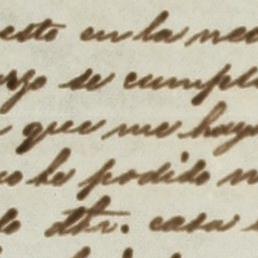 esto en la nec
se cumpl
que me hay
he podido
dhr. casa